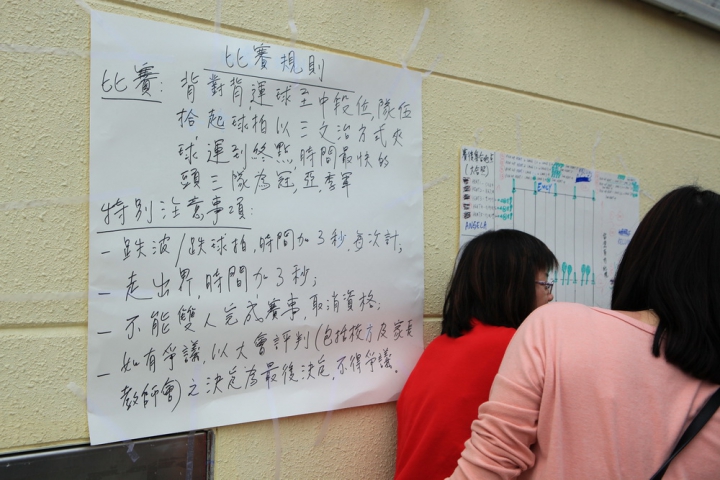 比賽規則
比賽: 背對背,運球至中段位,隊伍
拾起球拍以三文治方式夾
球運到終點,時間最快的
頭三隊為冠,亞,季軍
特別注意事項:
- 跌波/跌球拍,時間加3秒,每次計;
- 走出界,時間加3秒;
- 不能雙人完成賽事,取消資格;
- 如有爭議,以大會評判(包括校方及家長
教師會)之決定為最後決定,不得爭議.
EMILY
ANGELA